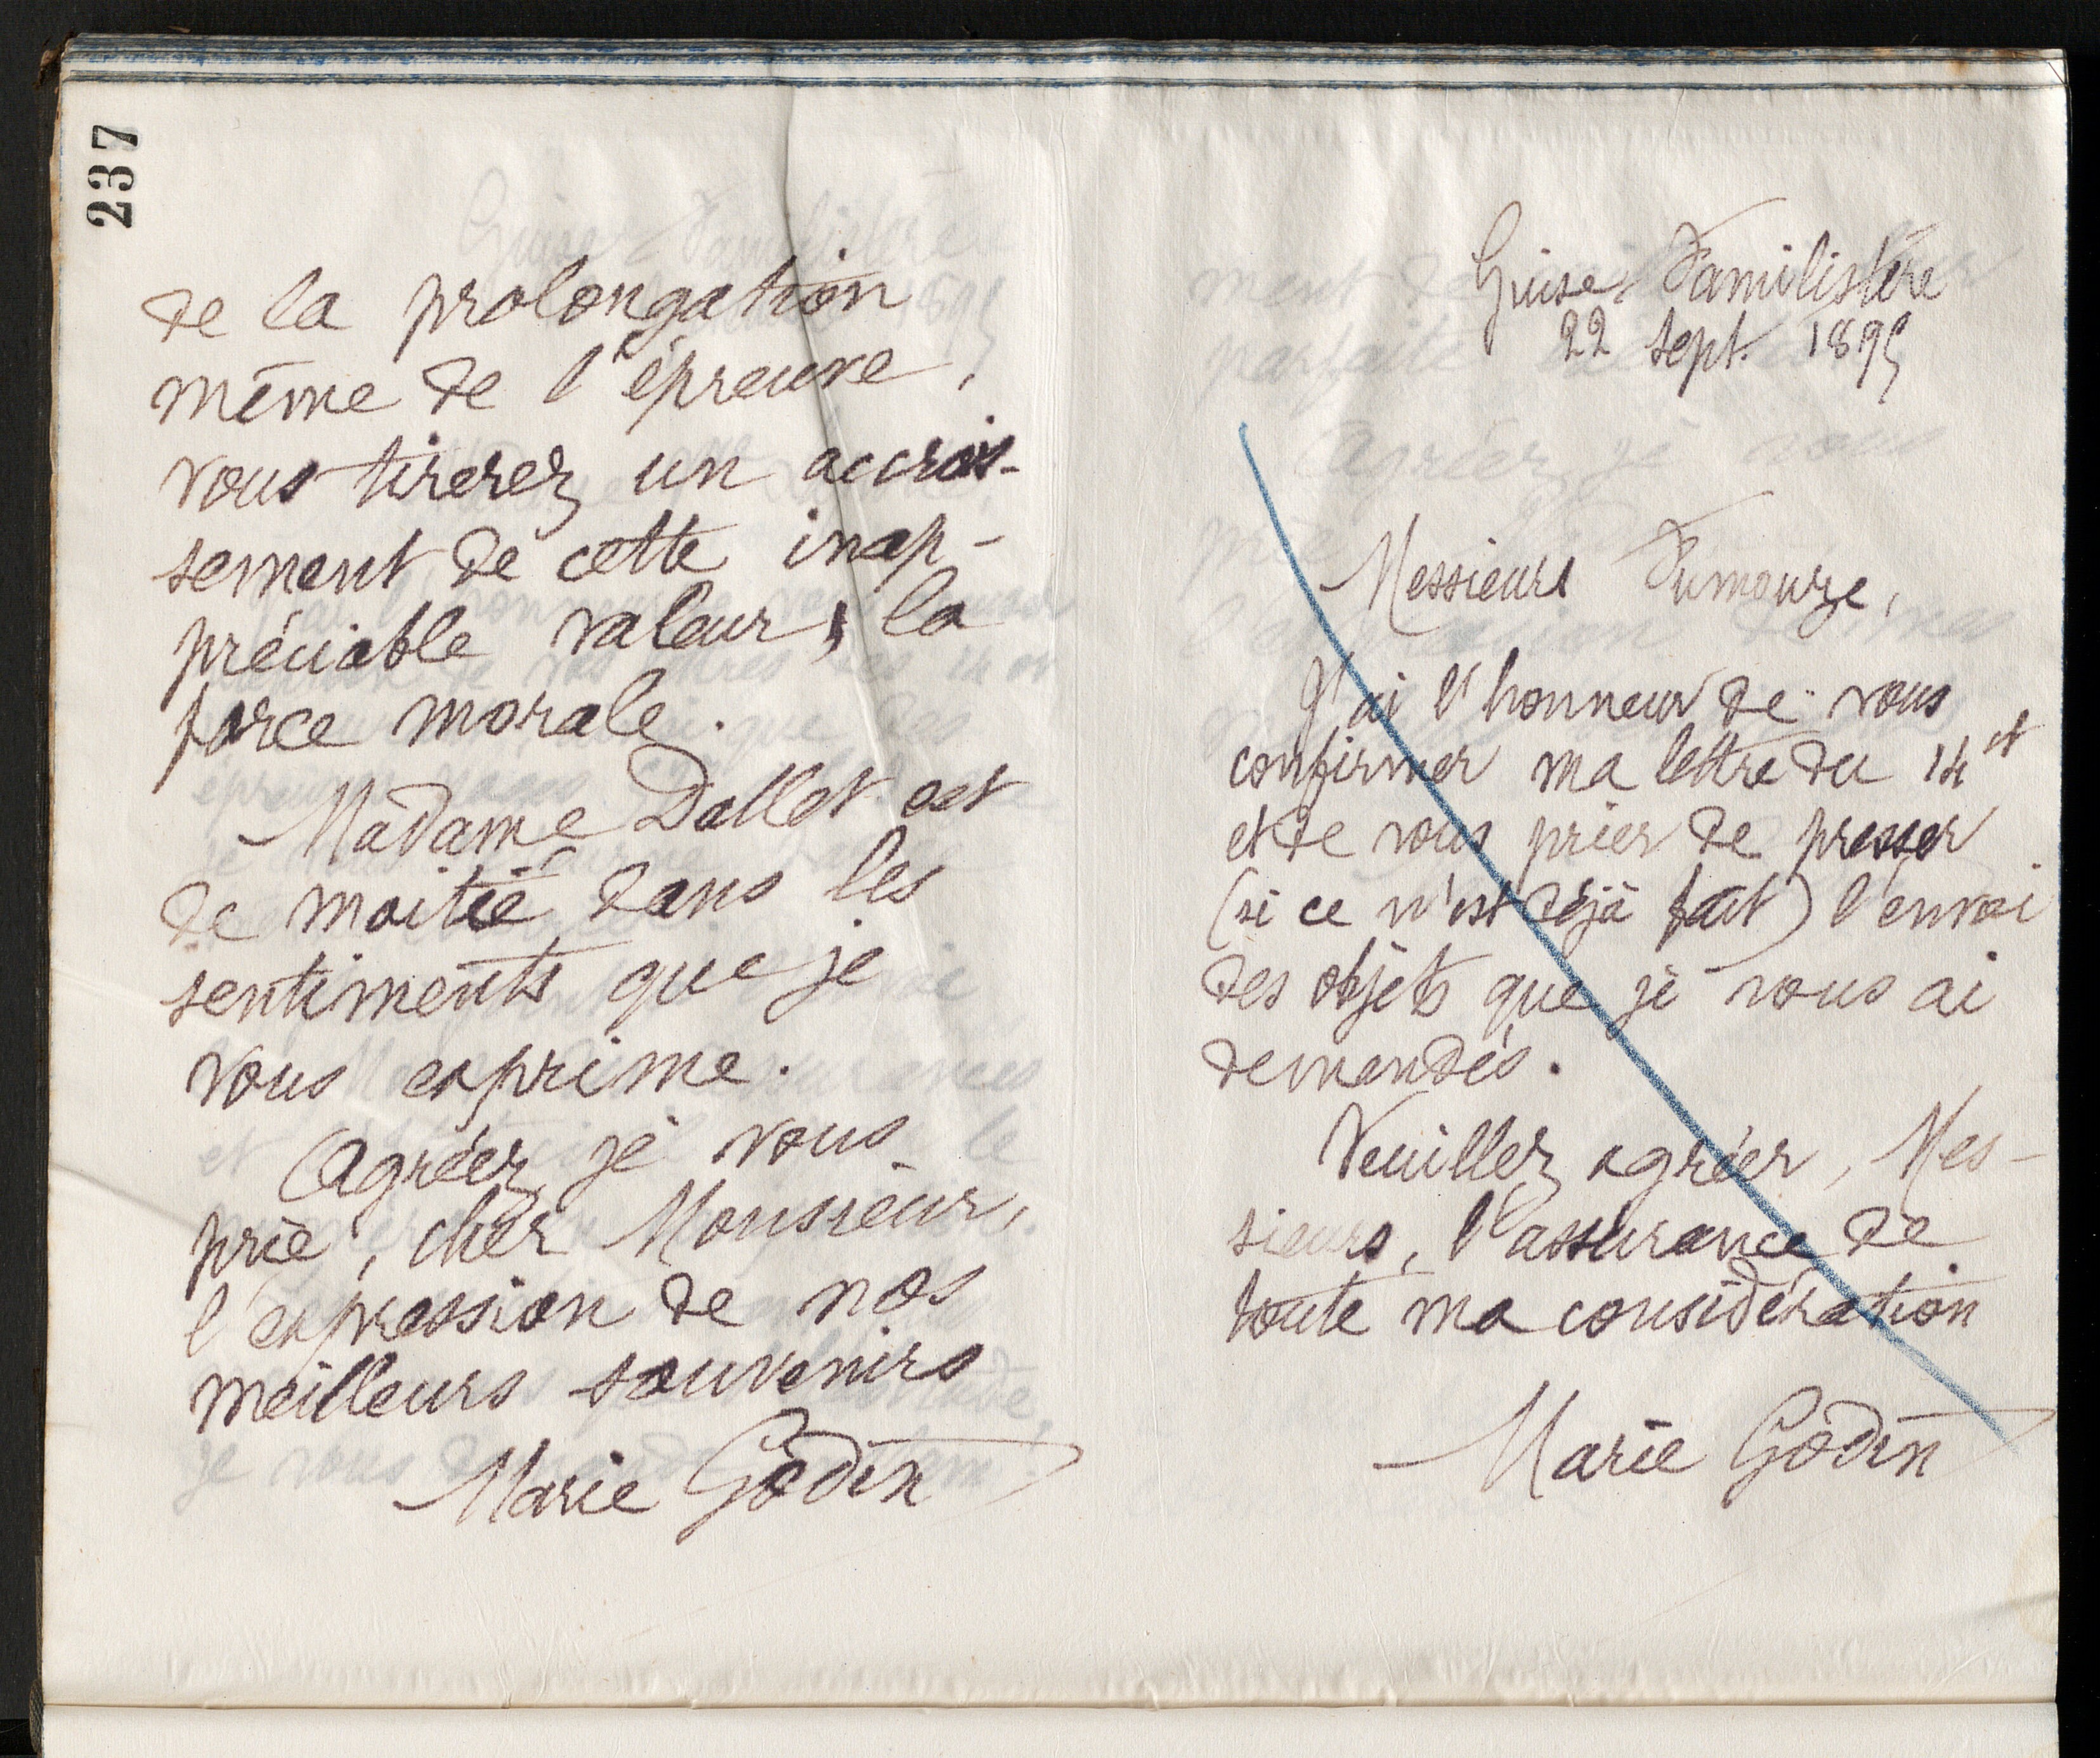 237
de la prolongation
même de l'épreuve,
vous tirerez un accrois-
sement de cette inap-
préciable valeur, la
force morale.
Madame Dallet est
de moitié dans les
sentiments que je
vous exprime.
Agréez, je vous
prie, cher Monsieur,
l'expression de nos
meilleurs souvenirs
Marie Godin
Guise Familistère
22 sept. 1895
Messieurs Fumouze,
J'ai l'honneur de vous
confirmer ma lettre du 14 ct
et de vous prier de presser
(si ce n'est déjà fait) l'envoi
des objets que je vous ai
demandés.
Veuillez agréer, Mes-
sieurs, l'assurance de
toute ma considération
Marie Godin